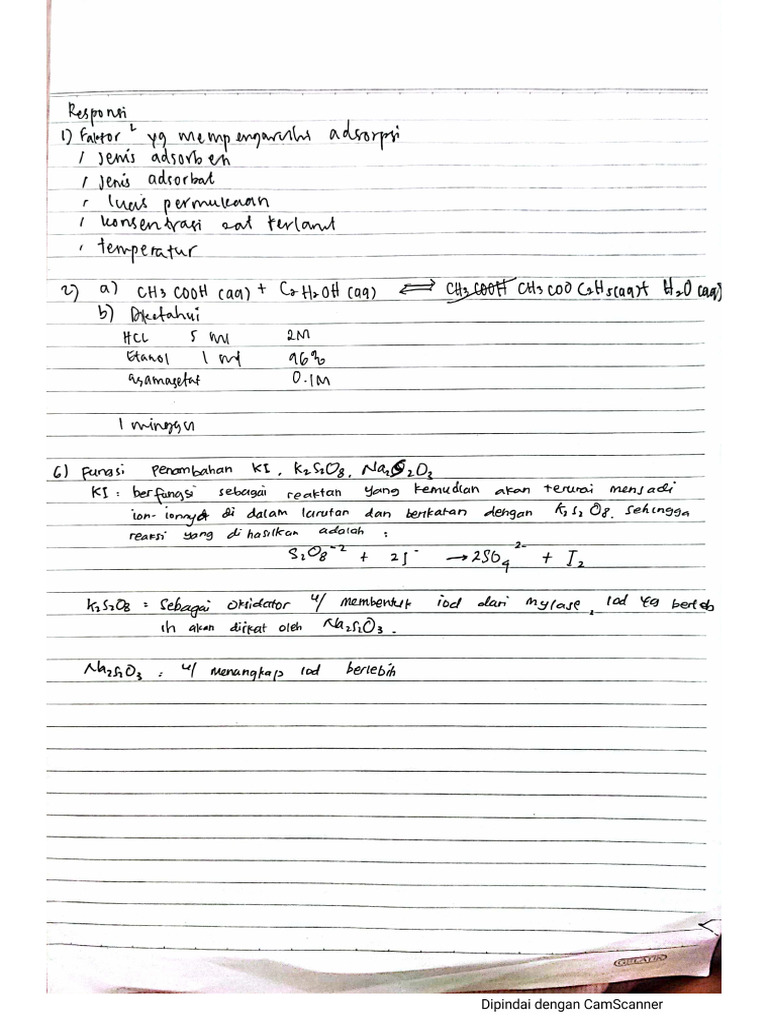 Responsi
1) Faktor² yg mempengaruhi adsorpsi
/ Jenis adsorben
/ Jenis adsorbat
, luas permukaan
, konsentrasi zat terlarut
, temperatur
2) a) CH3 COOH (aq) + C2 H2OH (aq) ⇌ CH3 COOH CH3 COO C2H5(aq)+ H2O (aq)
b) Diketahui
HCL 5 ml 2M
Etanol 1 ml 96%
asamasetat 0.1M
1 minggu
6) Fungsi Penambahan KI, K2S2O8, Na2S2O3
KI : berfungsi sebagai reaktan yang kemudian akan terurai menjadi
ion-ionnya di dalam larutan dan berikatan dengan K2S2O8. Sehingga
reaksi yang dihasilkan adalah :
S2O8⁻² + 2I⁻ → 2SO4²⁻ + I2
K2S2O8 = Sebagai Oksidator u/ membentuk iod dari mylase, Iod yg berleb
ih akan diikat oleh Na2S2O3.
Na2S2O3 : u/ menangkap iod berlebih
GELATIK
Dipindai dengan CamScanner